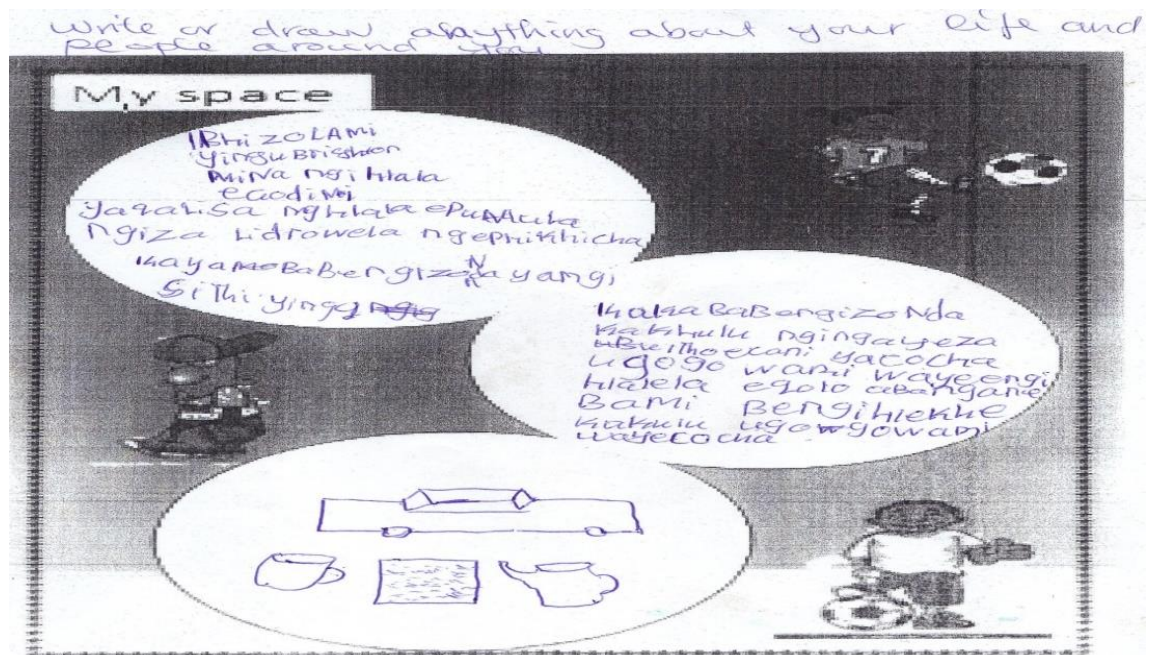 Write or draw abaything about your life and
people around you
My space
IBhi ZOLAMi
yingu Brighton
MiNa ngi hlala
egodiNi
Yaqalisa nghlala ePuMula
Ngiza Lidrowela ngephikhicha
KayamoBaBengizoNda yangi
SiThi yingq
KakaBaBengizoNda
Kakhulu ngingayeza
yacocha
ugogo wami wayeengi
hlalela egolo abangane
BaMi BengihleKhe
Kakhulu ugowgowami
wayecocha
7